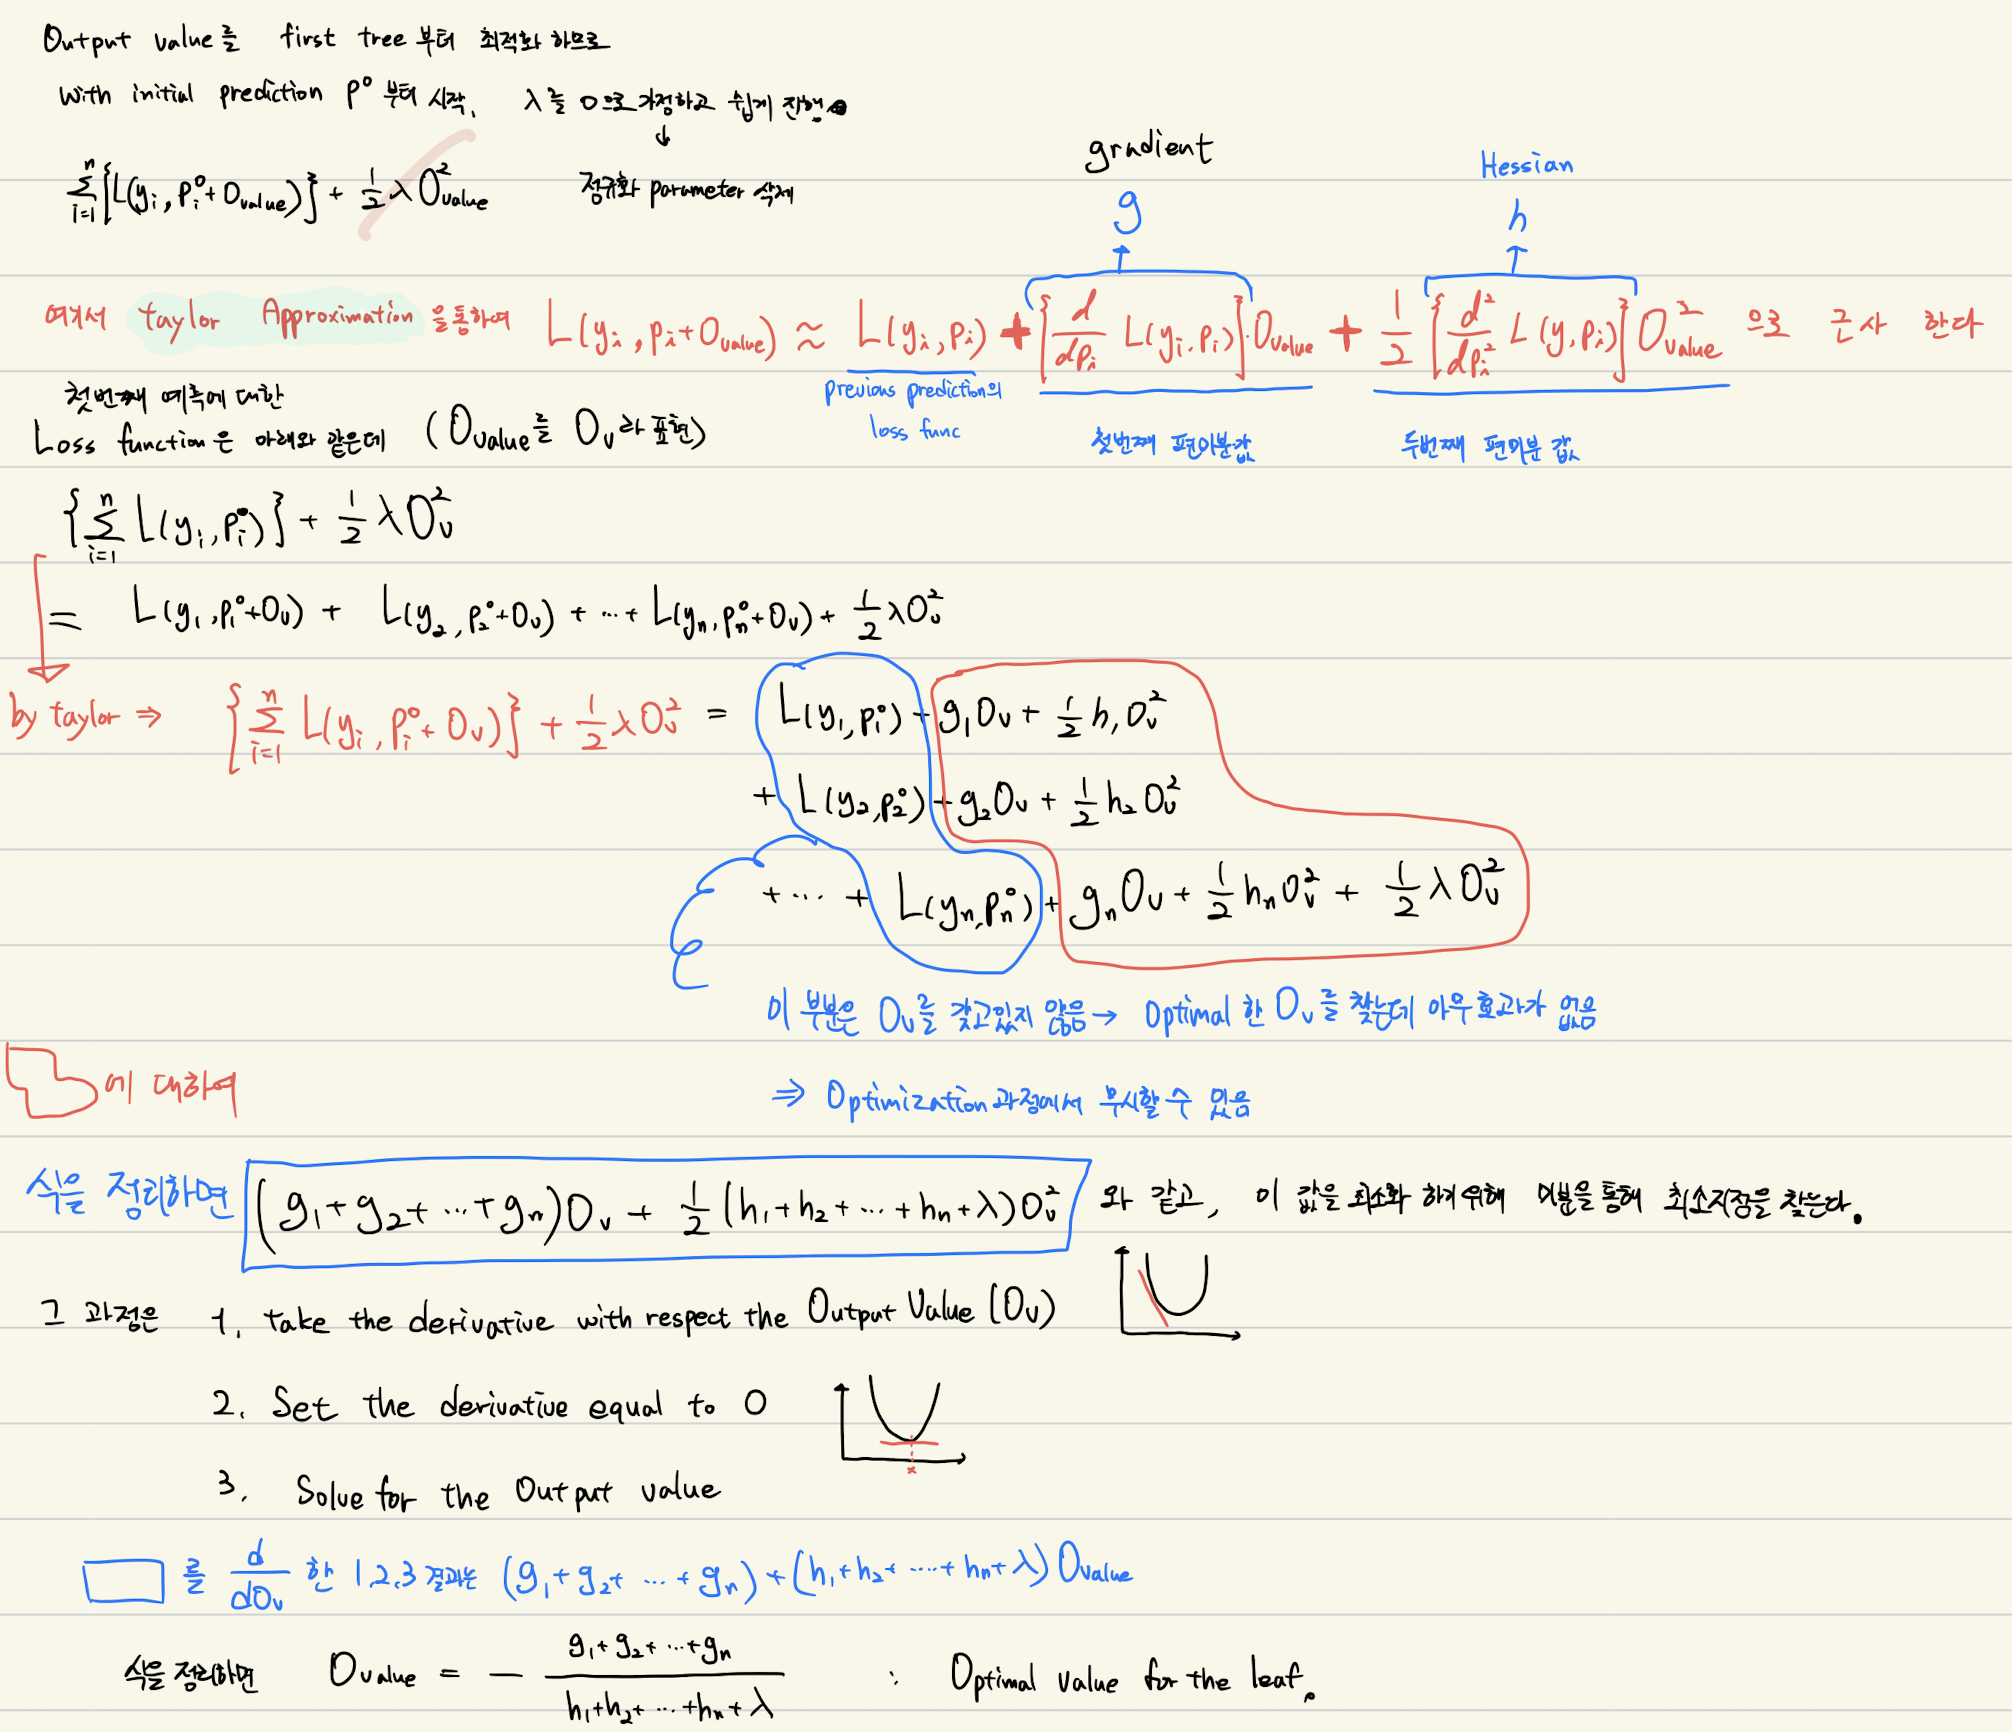 Output value를 first tree 부터 최적화 하므로
with initial prediction p⁰ 부터 시작, λ를 0으로 가정하고 쉽게 진행
↓
정규화 parameter 삭제
Σ_{i=1}^{n} {L(y_i, p_i⁰ + O_value)} + 1/2 λ O²_value
gradient
g
Hessian
h
여기서 taylor Approximation을 통하여 L(y_i, p_i + O_value) ≈ L(y_i, p_i) + {d/dp_i L(y_i, p_i)}·O_value + 1/2 {d²/dp_i² L(y, p_i)} O²_value 으로 근사 한다
previous prediction의
loss func
첫번째 편미분값
두번째 편미분 값
첫번째 예측에 대한
Loss function은 아래와 같은데 (O_value를 O_v라 표현)
{Σ_{i=1}^{n} L(y_i, p_i⁰)} + 1/2 λO_v²
= L(y₁, p₁⁰+O_v) + L(y₂, p₂⁰+O_v) + ··· + L(y_n, p_n⁰+O_v) + 1/2 λO_v²
by taylor ⇒ {Σ_{i=1}^{n} L(y_i, p_i⁰ + O_v)} + 1/2 λO_v² = L(y₁, p₁⁰) + g₁O_v + 1/2 h₁O_v²
+ L(y₂, p₂⁰) + g₂O_v + 1/2 h₂O_v²
+ ··· + L(y_n, p_n⁰) + g_nO_v + 1/2 h_nO_v² + 1/2 λO_v²
이 부분은 O_v를 갖고있지 않음 → Optimal 한 O_v를 찾는데 아무효과가 없음
⇒ Optimization과정에서 무시할 수 있음
에 대하여
식을 정리하면 (g₁+g₂+ ··· +g_n)O_v + 1/2 (h₁+h₂+ ··· +h_n+λ)O_v² 와 같고, 이 값을 최소화 하기 위해 미분을 통해 최소지점을 찾는다.
그 과정은 1. take the derivative with respect the Output Value (O_v)
2. Set the derivative equal to 0
3. Solve for the Output value
를 d/dO_v 한 1,2,3 결과는 (g₁+g₂+ ··· +g_n) + (h₁+h₂+ ···· +h_n+λ) O_value
식을 정리하면 O_value = − (g₁+g₂+ ··· +g_n)/(h₁+h₂+ ··· +h_n+λ) : Optimal value for the leaf.